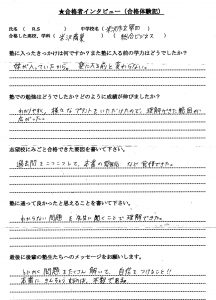 ★合格者インタビュー（合格体験記）
氏名（ R.S ） 中学校名（ 米沢市立第四 ）
合格した高校、学科（ 米沢商業 ）（ 総合ビジネス ）
塾に入ったきっかけは何ですか？また塾に入る前の学力はどうでしたか？
姉が入っていたから。 塾に入る前と変わらない。
塾での勉強はどうでしたか？どのように成績が伸びましたか？
わかりやすく、様々なプリントをしていただけたので、理解できた範囲が
広がった。
志望校にみごと合格できた要因を書いて下さい。
過去問をこつこつとして、本番の
塾に通って良かったと思えることを書いて下さい。
わからない問題を先生に聞くことで理解できた。
最後に後輩の塾生たちへのメッセージをお願いします。
とにかく問題をたくさん解いて、自信をつけること!!
本番にきんちょうするのは、